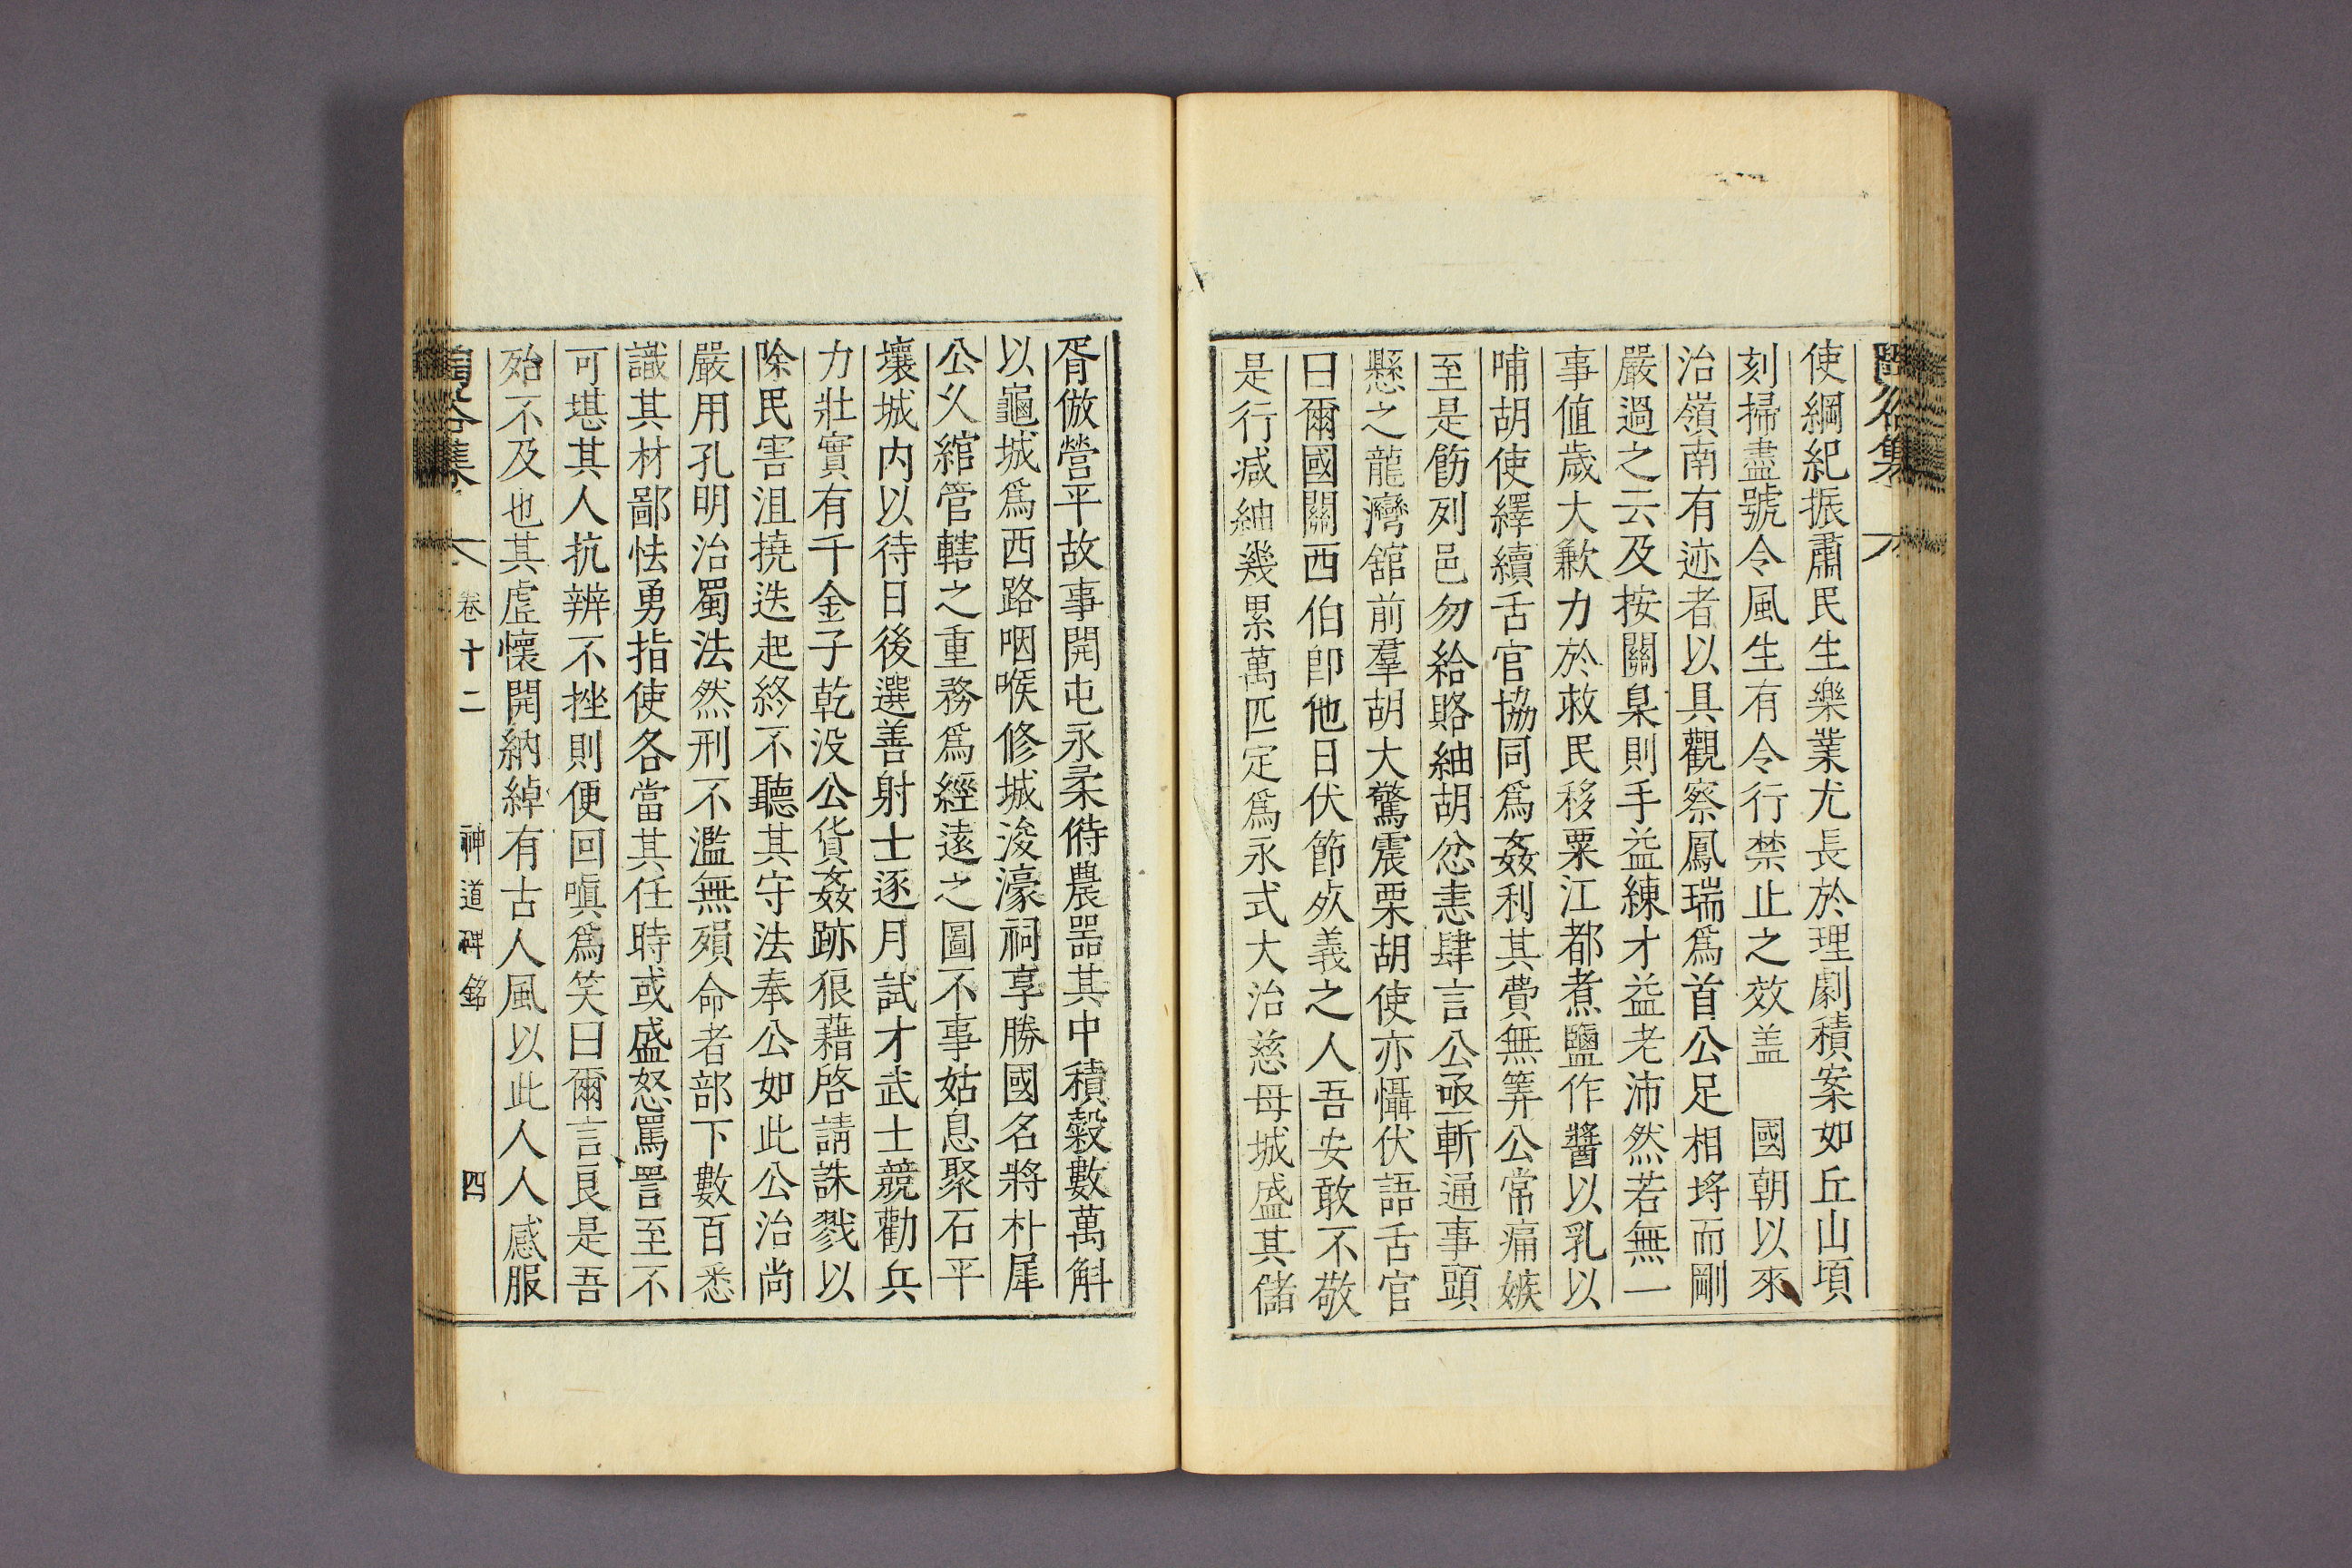 使綱紀振肅民生樂業尤長於理劇積案如丘山頃
刻掃盡號令風生有令行禁止之效盖　國朝以來
治嶺南有迹者以具觀察鳳瑞爲首公足相埒而剛
嚴過之云及按關臬則手益練才益老沛然若無一
事值歲大歉力於救民移粟江都煮鹽作醬以乳以
哺胡使繹續舌官協同爲姦利其費無筭公常痛嫉
至是飭列邑勿給賂紬胡忿恚肆言公亟斬通事頭
懸之龍灣舘前羣胡大驚震栗胡使亦懾伏語舌官
曰爾國關西伯卽他日伏節死義之人吾安敢不敬
是行减紬幾累萬匹定爲永式大治慈母城盛其儲
胥倣營平故事開屯永柔偫農器其中積糓數萬斛
以龜城爲西路咽喉修城浚濠祠享勝國名將朴犀
公久綰管轄之重務爲經遠之圖不事姑息聚石平
壤城内以待日後選善射士逐月試才武士競勸兵
力壯實有千金子乾没公貨姦跡狼藉啓請誅戮以
除民害沮撓迭起終不聽其守法奉公如此公治尚
嚴用孔明治蜀法然刑不濫無殞命者部下數百悉
識其材鄙怯勇指使各當其任時或盛怒罵詈至不
可堪其人抗辨不挫則便回嗔爲笑曰爾言良是吾
殆不及也其虛懷開納綽有古人風以此人人感服
卷十二
神道碑銘
四